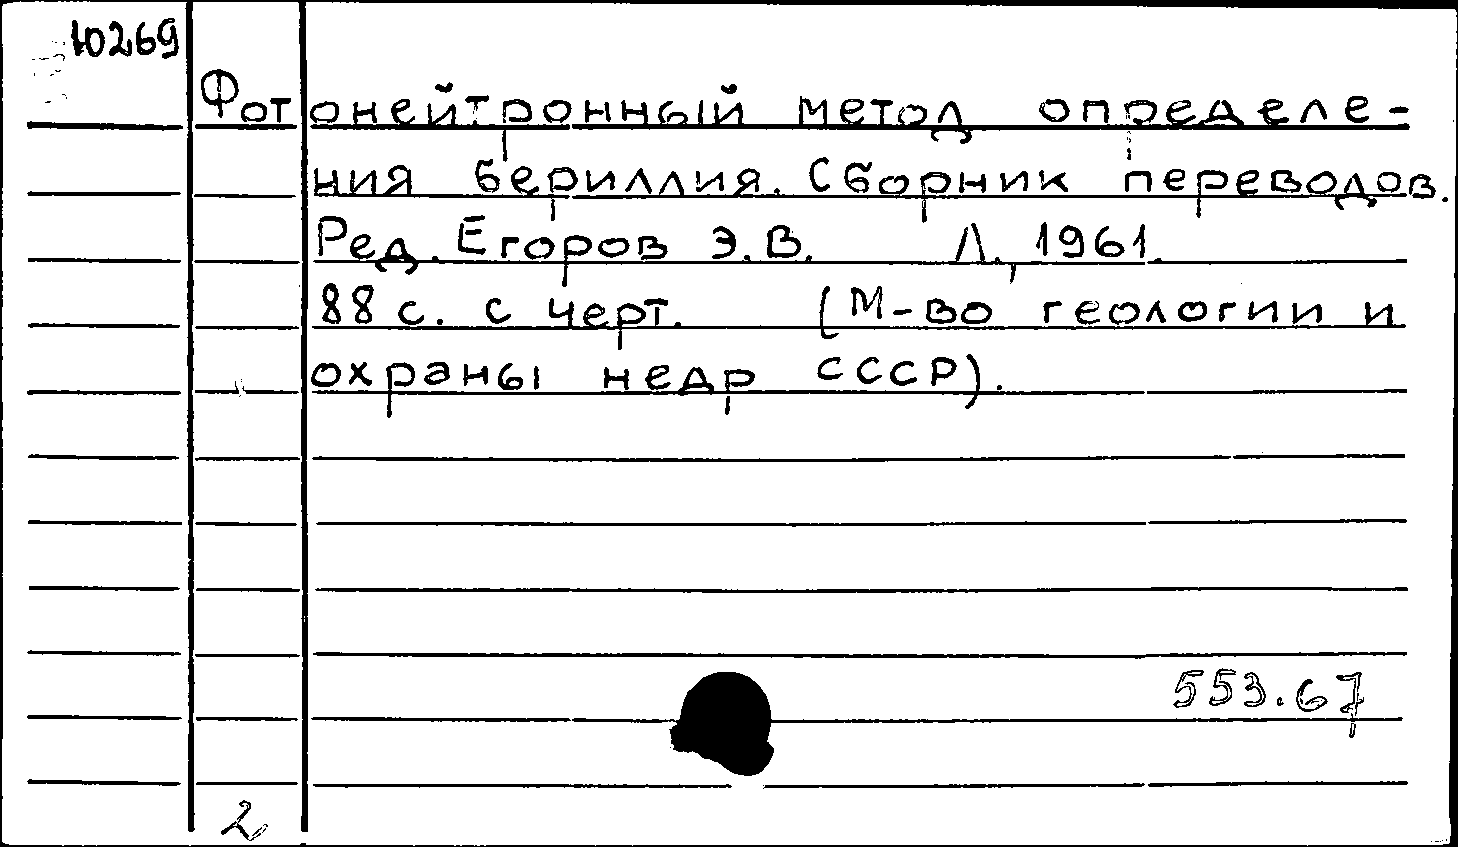 10269
Фотонейтронный метод определе-
ния бериллия. Сборник переводов.
Ред. Егоров Э.В. Л., 1961.
88 с. с черт. (М-во геологии и
охраны недр СССР).
553.67
2